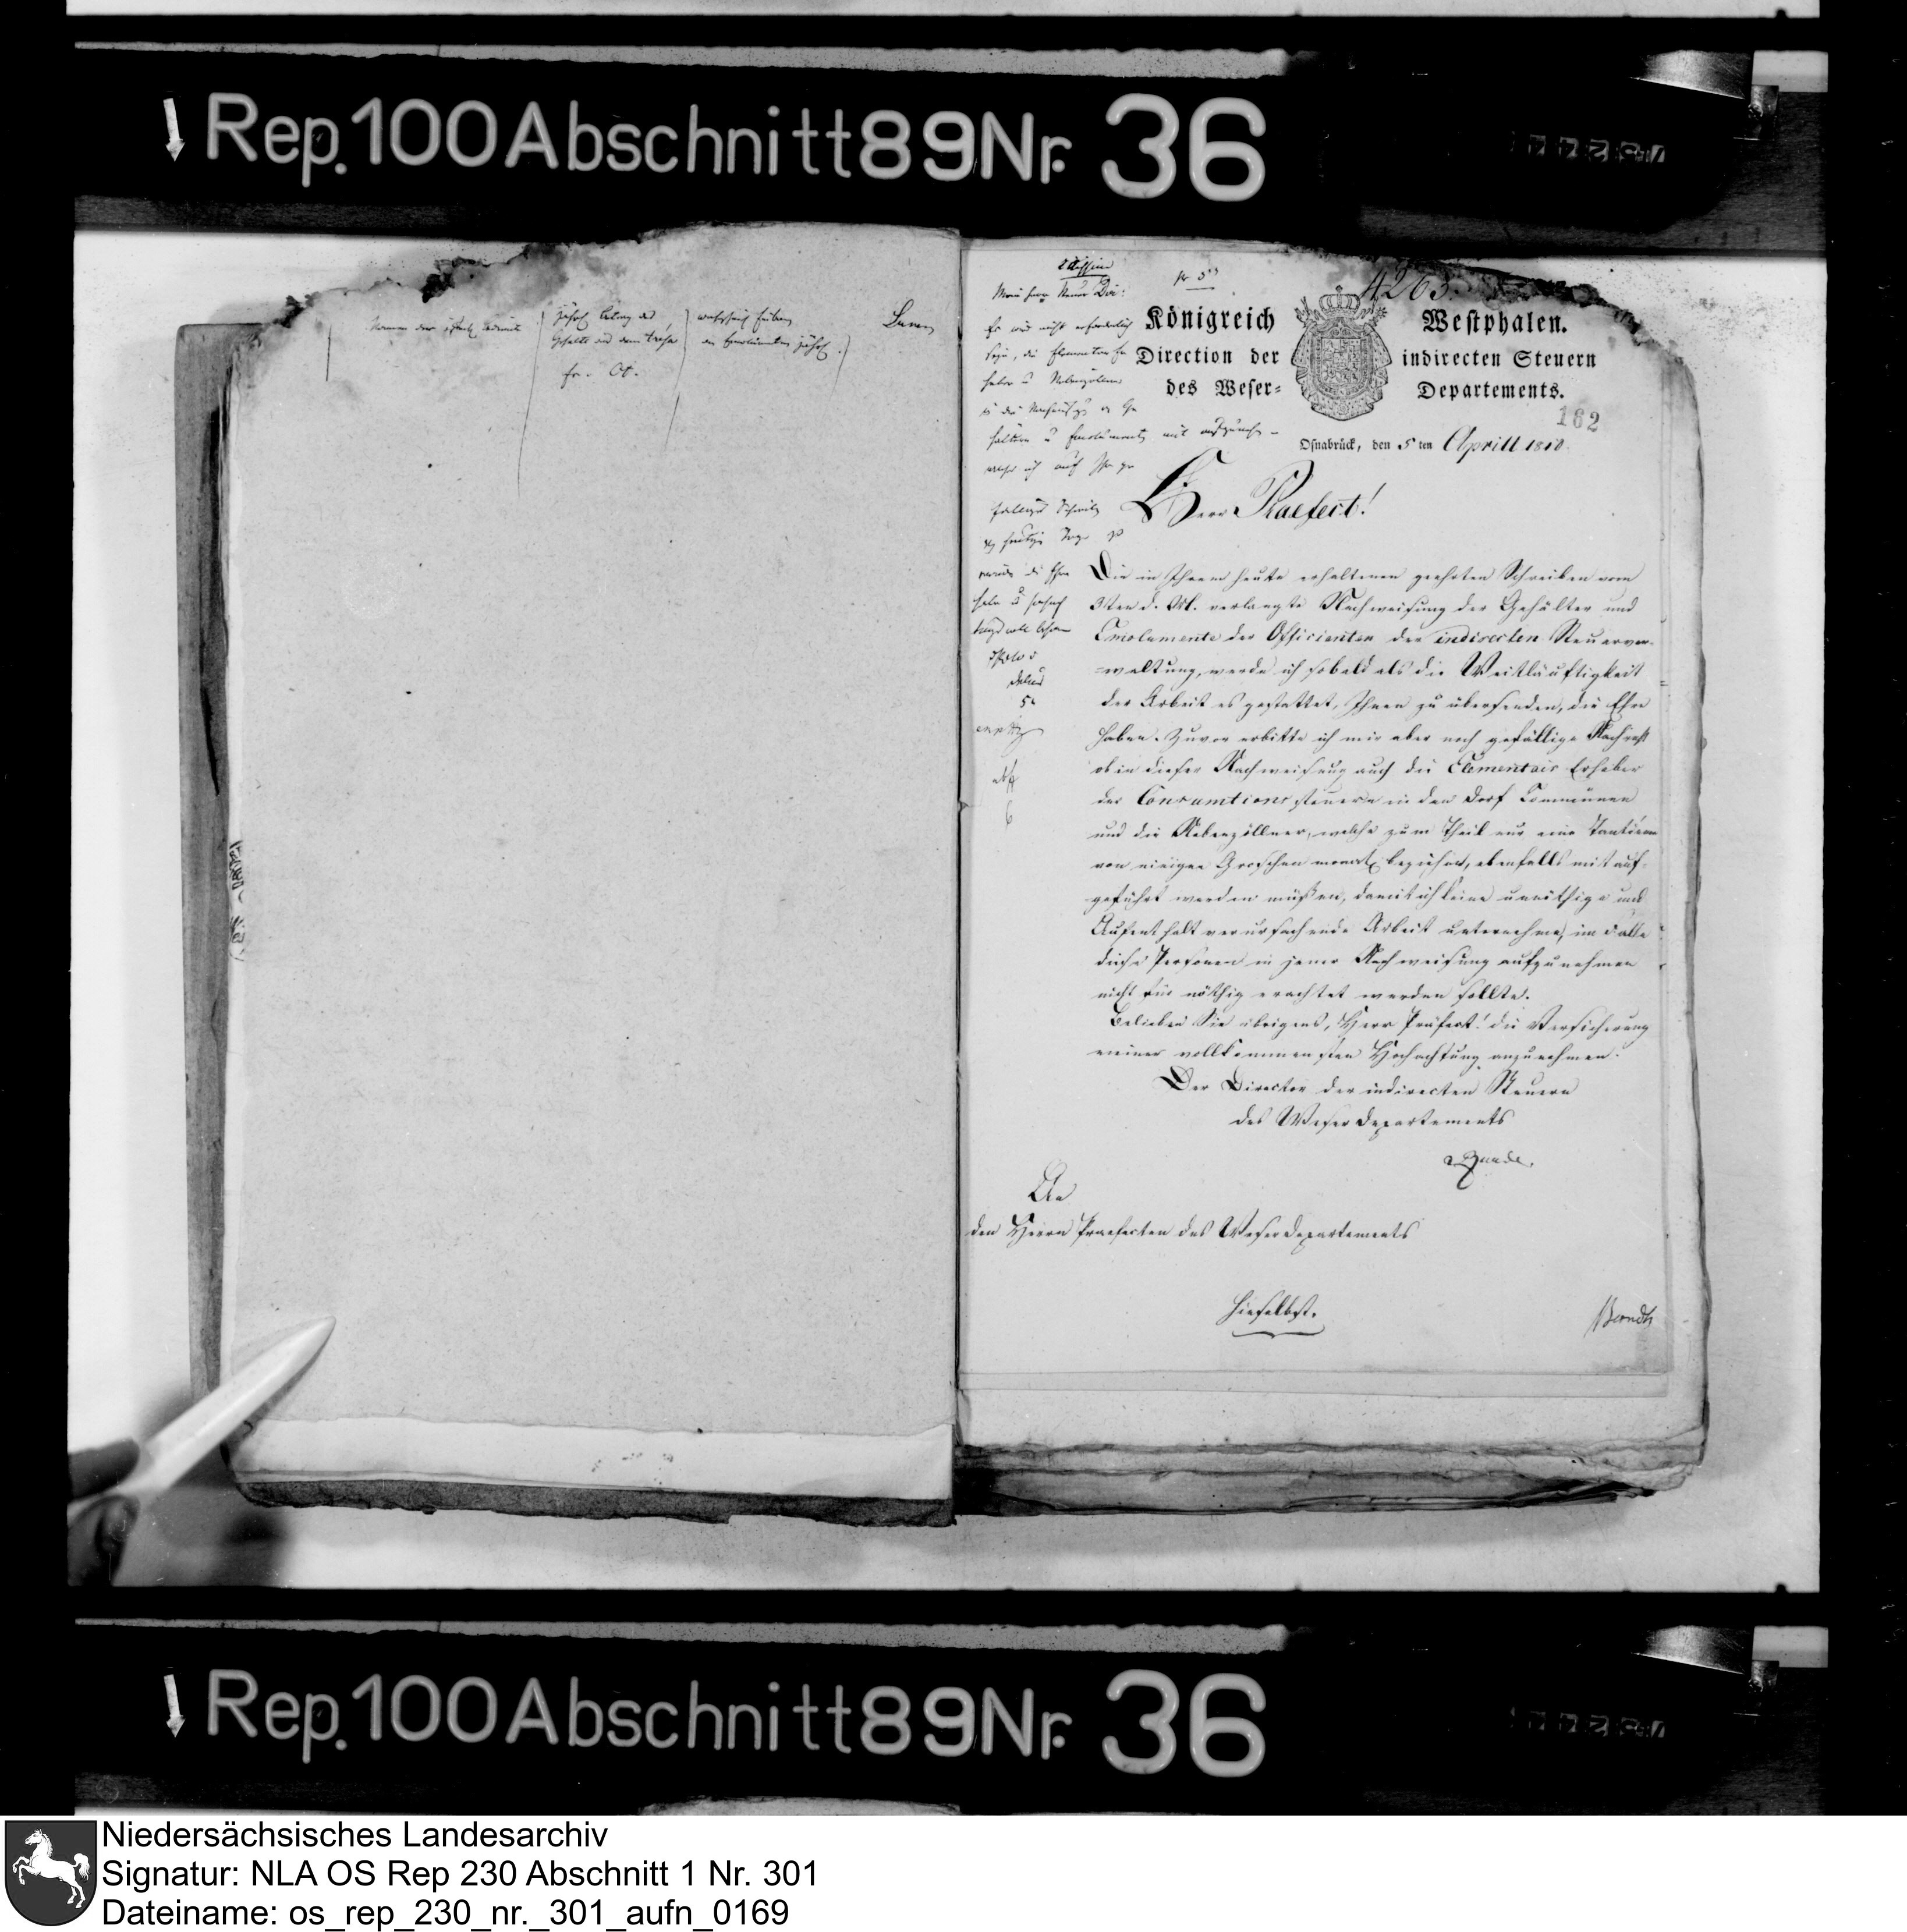 Rep. 100 Abschnitt 89 Nr. 36
Namen der
jährl. Betrag des
Gehalts
fr. Ct.
der Emolumente jährl.
4263.
Königreich Westphalen.
Direction der indirecten Steuern
des Weser- Departements.
162
Osnabrück, den 5 ten Aprill 1810.
Es wird nicht erforderlich
seyn, die Elementar Er
heber u Nebenzöllner
in die
hälter u Emolumente mit aufzunehmen
welches ich auf Ihr ge
fälliges Schreiben
Herr Praefect!
Die in Ihrem heute erhaltenen geehrten Schreiben vom
3ten d. M. verlangte Nachweisung der Gehälter und
Emolumente der Officianten der indirecten Steuerver-
=waltung, werde ich sobald als die Weitläuftigkeit
der Arbeit es gestattet, Ihnen zu übersenden, die Ehre
haben. Zuvor erbitte ich mir aber noch gefällige Nachricht
ob in dieser Nachweisung auch die Elementair Erheber
der Consumtions steuern in den Dorf Communen
und die Nebenzöllner, welche zum Theil nur eine Tantieme
von einigen Groschen monatl. beziehen, ebenfalls mit auf-
geführt werden müßen, damit ich keine unnöthige und
Aufenthalt verursachende Arbeit unternehme, im Falle
diese Personen in jener Nachweisung aufzunehmen
nicht für nöthig erachtet werden sollte.
Belieben Sie übrigens, Herr Präfect! die Versicherung
meiner vollkommensten Hochachtung anzunehmen.
Der Director der indirecten Steuern
des Weserdepartements
An
den Herrn Praefecten des Weserdepartements
hieselbst.
Rep. 100 Abschnitt 89 Nr. 36
Niedersächsisches Landesarchiv
Signatur: NLA OS Rep 230 Abschnitt 1 Nr. 301
Dateiname: os_rep_230_nr._301_aufn_0169